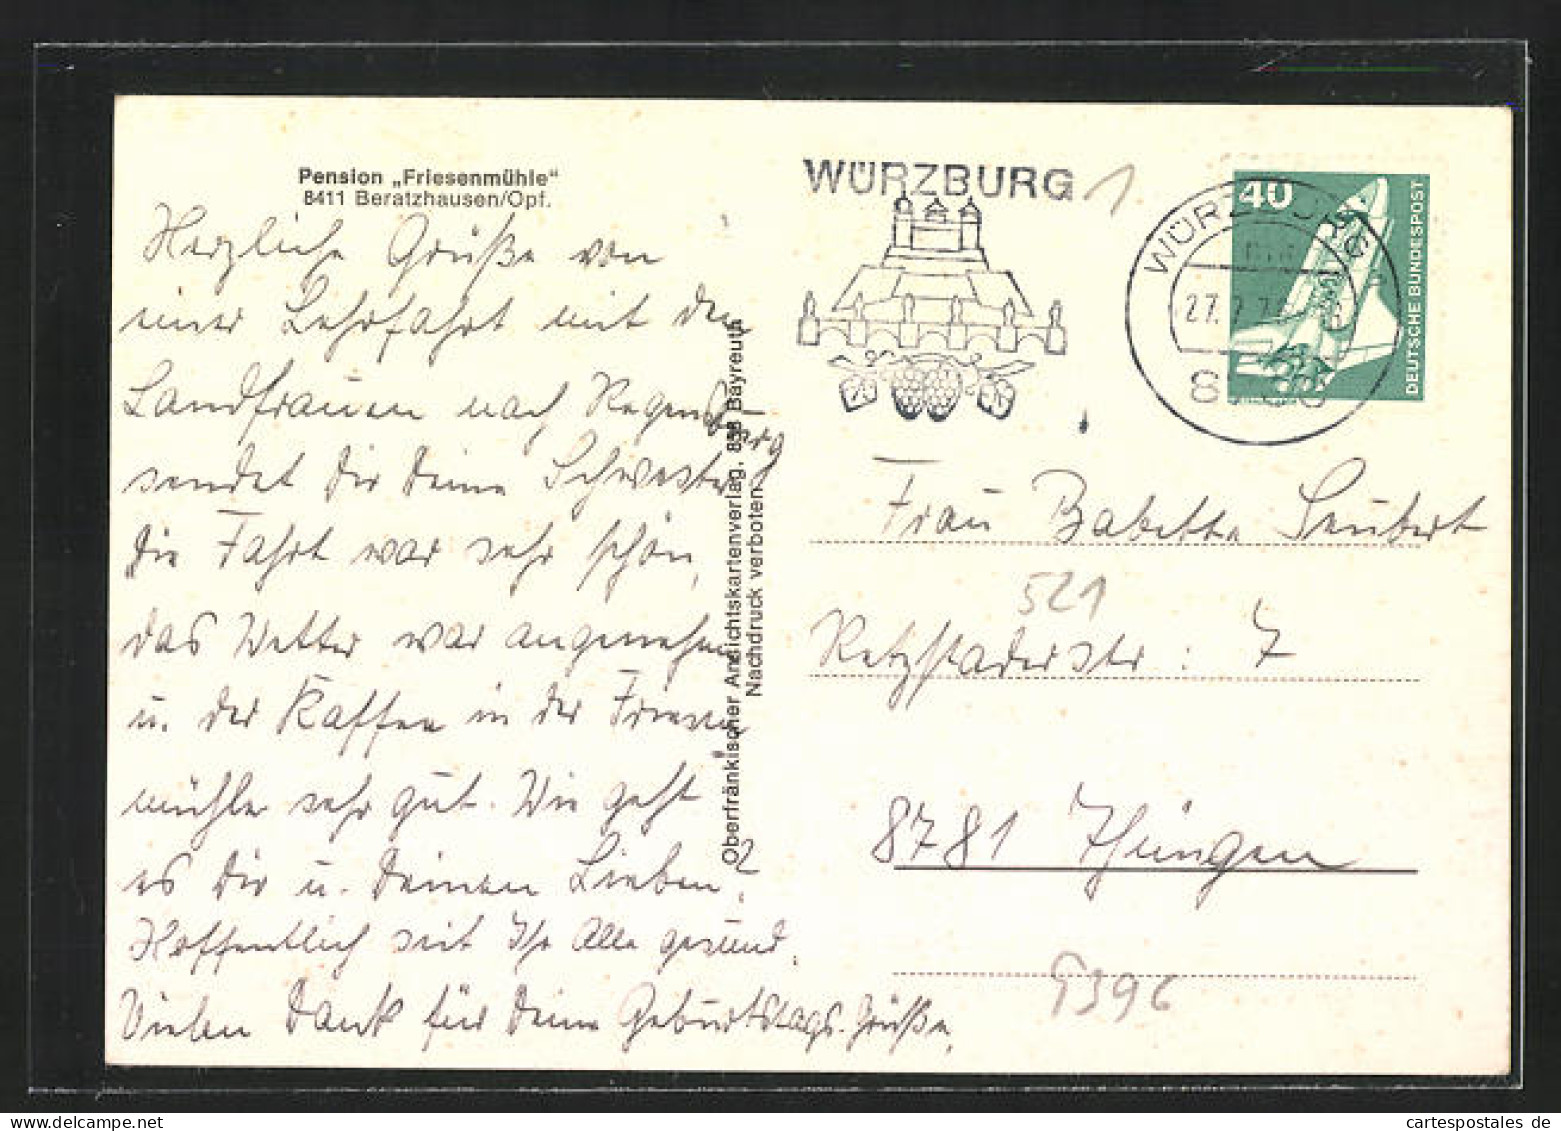 Pension „Friesenmühle“
8411 Beratzhausen/Opf.
Herzliche Grüße von
einer Lehrfahrt mit den
Landfrauen nach Regensburg
sendet Dir Deine Schwester
Die Fahrt war sehr schön,
das Wetter war angenehm
u. der Kaffee in der Friesen
mühle sehr gut. Wie geht
es Dir u. Deinen Lieben?
Hoffentlich seit Ihr Alle gesund.
Vielen Dank für Deine Geburtstags-Grüße.
Oberfränkischer Ansichtskartenverlag, 858 Bayreuth
Nachdruck verboten
WÜRZBURG
1
WÜRZBURG
27.
40
DEUTSCHE BUNDESPOST
Frau Babette Seubert
521
Retzstadterstr: 7
8781 Thüngen
9396
cartespostales.de